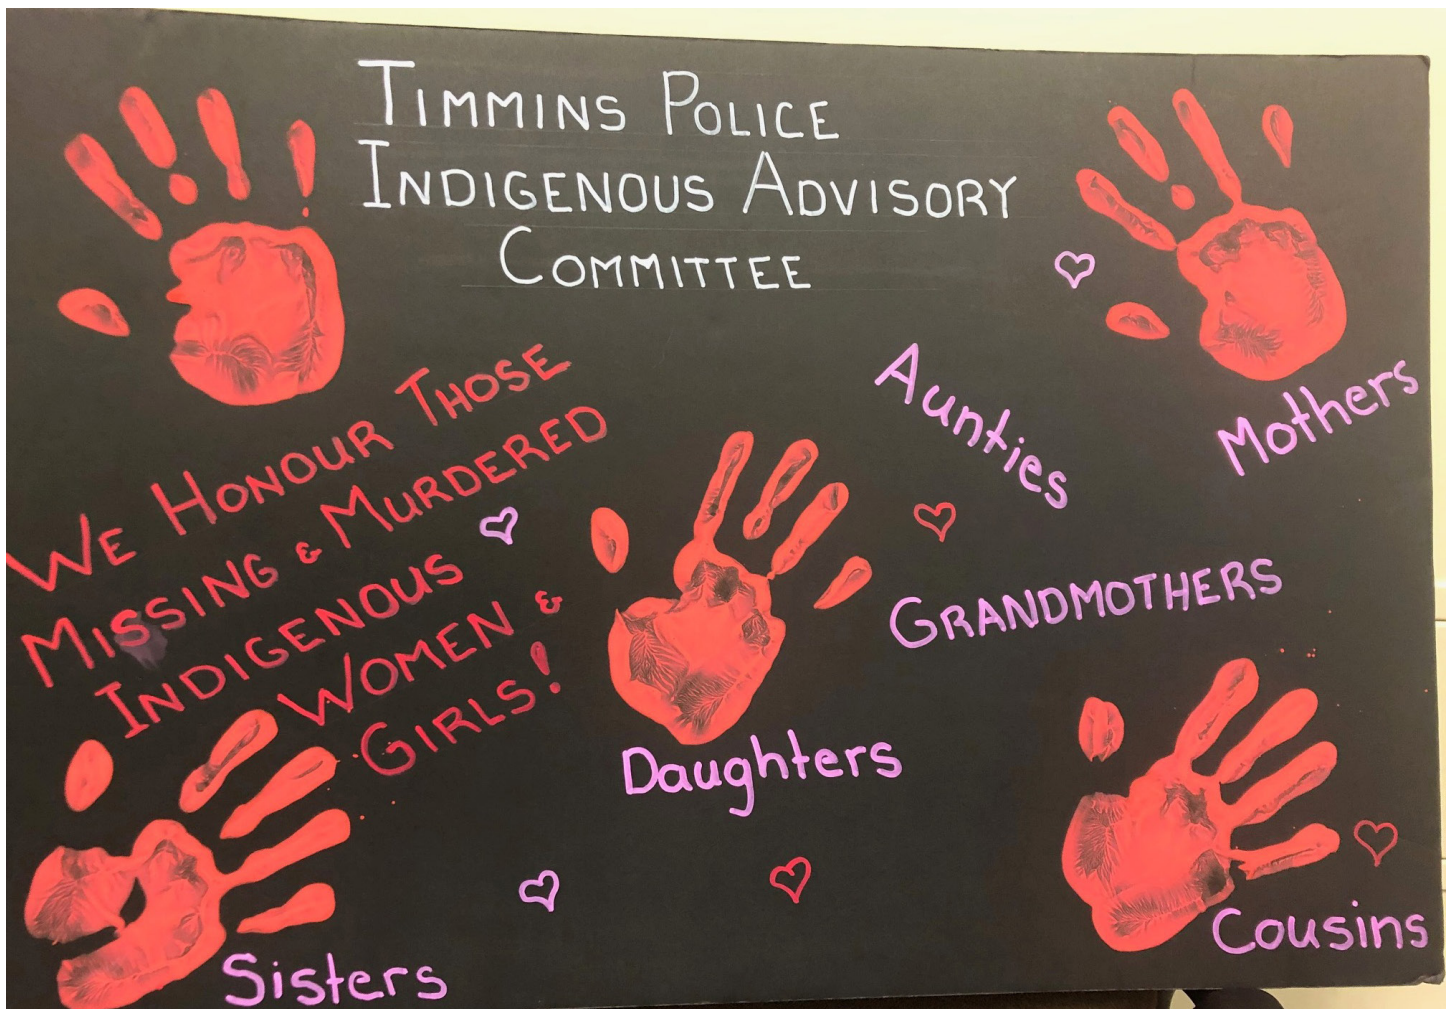 TIMMINS POLICE
INDIGENOUS ADVISORY
COMMITTEE
WE HONOUR THOSE
MISSING & MURDERED
INDIGENOUS
WOMEN &
GIRLS!
Aunties
Mothers
GRANDMOTHERS
Daughters
Cousins
Sisters